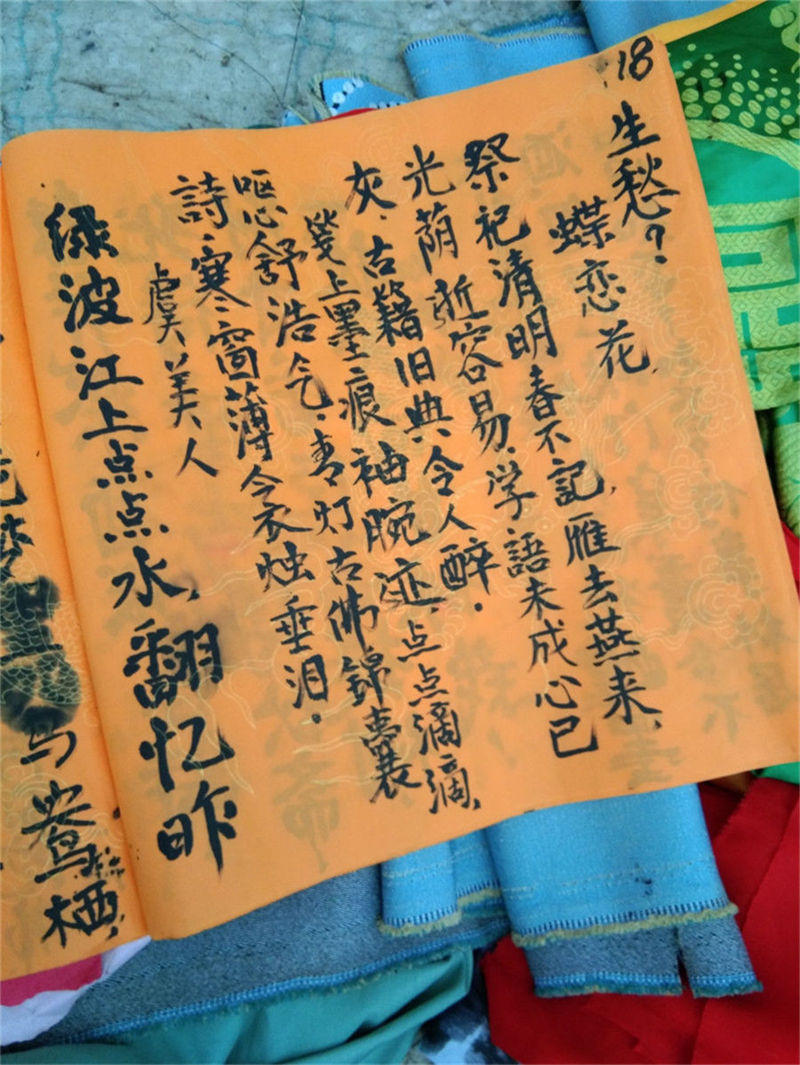 18
生愁？
蝶恋花
祭祀清明春不记，雁去燕来，
光荫逝容易，学語未成心已
灰，古籍旧典令人醉。
笺上墨痕袖腕迹，点点滴滴，
呕心舒浩气，青灯古佛錦囊
詩，寒窗薄令衣烛垂泪。
虞美人
绿波江上点点水，翻忆昨
鸳栖，